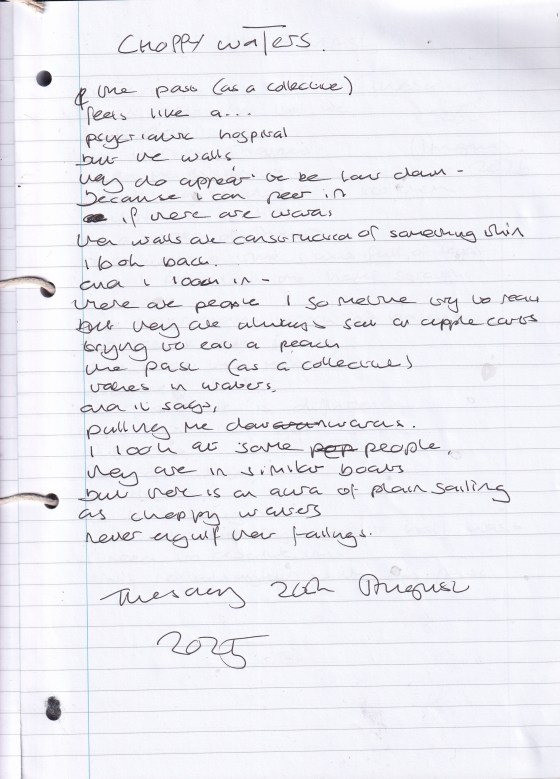 CHOPPY WATERS.
the past (as a collective)
feels like a...
psychiatric hospital
but the walls
they do appear to be low down -
because i can peer in
if there are wards
their walls are constructed of something thin
i look back.
and i look in -
there are people I sometime try to reach
but they are always sat at apple carts
trying to eat a peach
the past (as a collective)
wades in waters.
and it says,
pulling me downwards.
I look at some people,
they are in similar boats
but there is an aura of plain sailing
as choppy waters
never engulf their failings.
Tuesday 26th August
2025